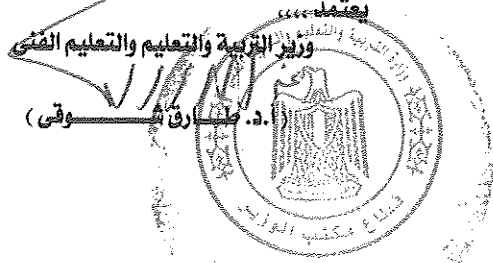 يعتمد ....
وزير التربية والتعليم والتعليم الفنى
(أ.د. طـــارق شـــــوقى )
وزارة التربية والتعليم
قطاع مكتب الوزير